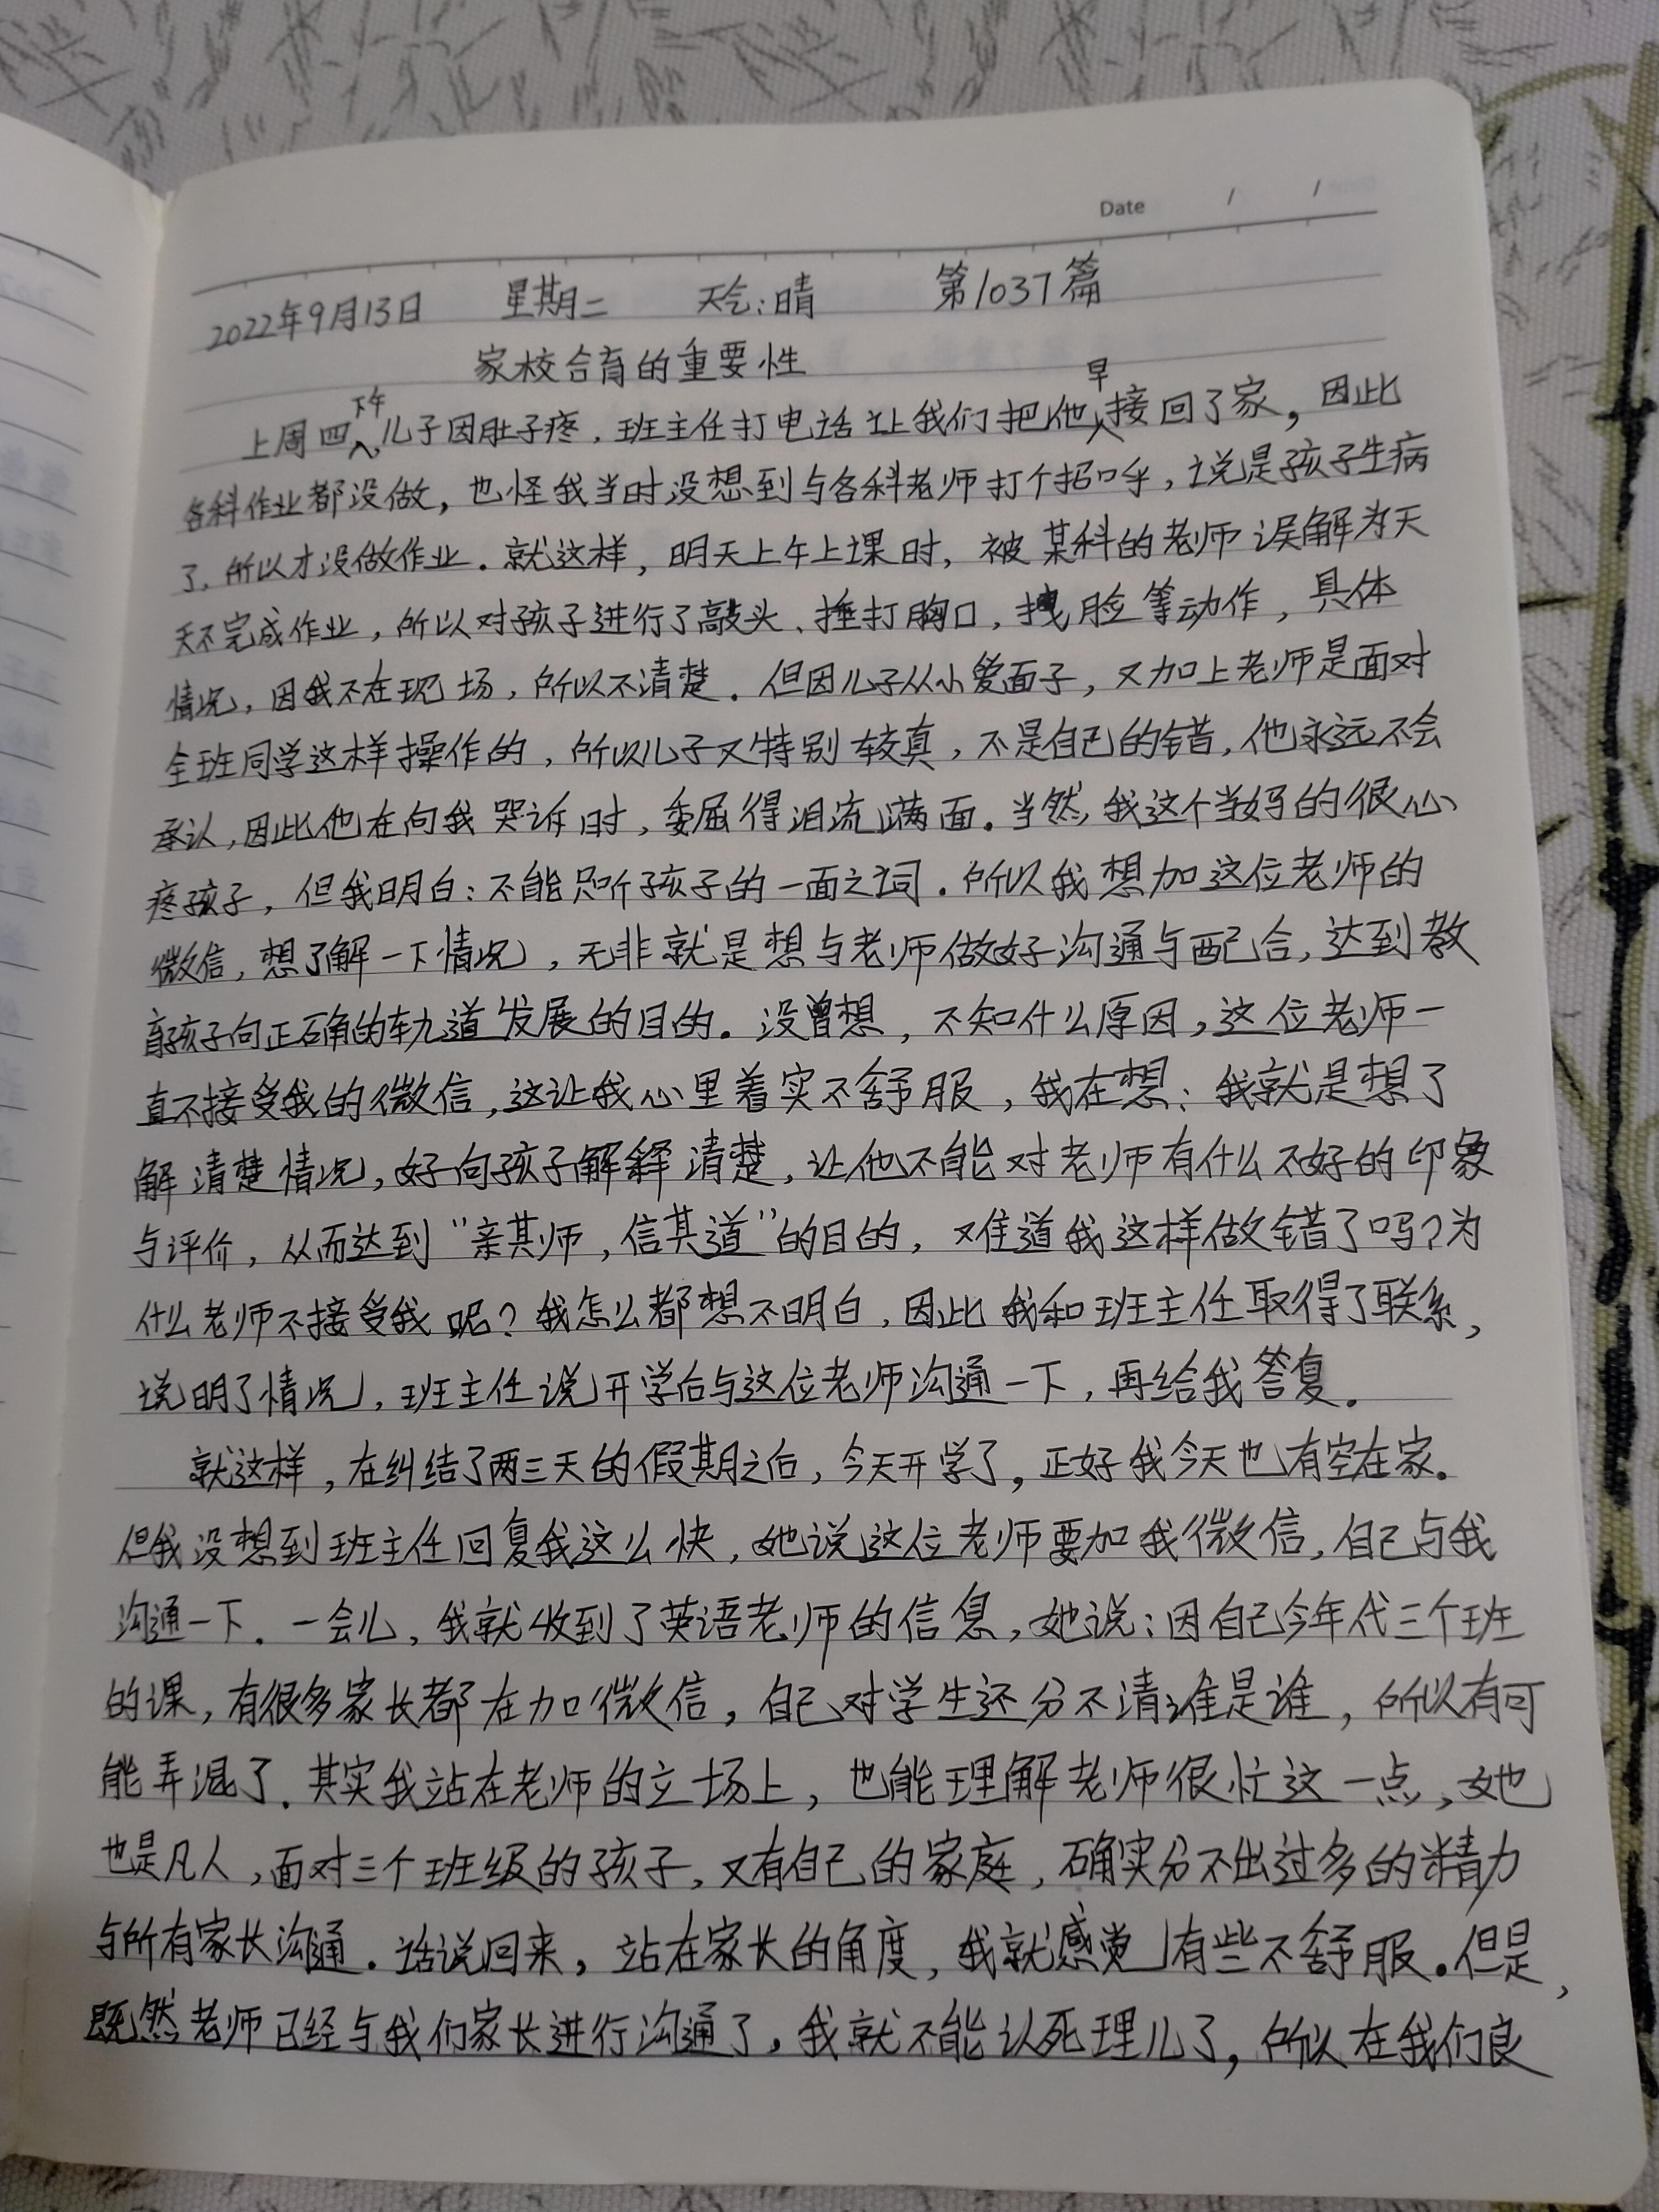 Date / /
2022年9月13日 星期二 天气:晴 第1037篇
家校合育的重要性
上周四下午,儿子因肚子疼,班主任打电话让我们把他早接回了家,因此
各科作业都没做,也怪我当时没想到与各科老师打个招呼,说是孩子生病
了,所以才没做作业。就这样,明天上午上课时,被某科的老师误解为天
天不完成作业,所以对孩子进行了敲头、捶打胸口,拽脸等动作,具体
情况,因我不在现场,所以不清楚。但因儿子从小爱面子,又加上老师是面对
全班同学这样操作的,所以儿子又特别较真,不是自己的错,他永远不会
承认,因此他在向我哭诉时,委屈得泪流满面。当然,我这个当妈的很心
疼孩子,但我明白:不能只听孩子的一面之词。所以我想加这位老师的
微信,想了解一下情况,无非就是想与老师做好沟通与配合,达到教
育孩子向正确的轨道发展的目的。没曾想,不知什么原因,这位老师一
直不接受我的微信,这让我心里着实不舒服,我在想:我就是想了
解清楚情况,好向孩子解释清楚,让他不能对老师有什么不好的印象
与评价,从而达到“亲其师,信其道”的目的,难道我这样做错了吗?为
什么老师不接受我呢?我怎么都想不明白,因此我和班主任取得了联系,
说明了情况,班主任说开学后与这位老师沟通一下,再给我答复。
就这样,在纠结了两三天的假期之后,今天开学了,正好我今天也有空在家。
但我没想到班主任回复我这么快,她说这位老师要加我微信,自己与我
沟通一下。一会儿,我就收到了英语老师的信息,她说:因自己今年代三个班
的课,有很多家长都在加微信,自己对学生还分不清谁是谁,所以有可
能弄混了。其实我站在老师的立场上,也能理解老师很忙这一点,她
也是凡人,面对三个班级的孩子,又有自己的家庭,确实分不出过多的精力
与所有家长沟通。话说回来,站在家长的角度,我就感觉有些不舒服。但是,
既然老师已经与我们家长进行沟通了,我就不能认死理儿了,所以在我们良